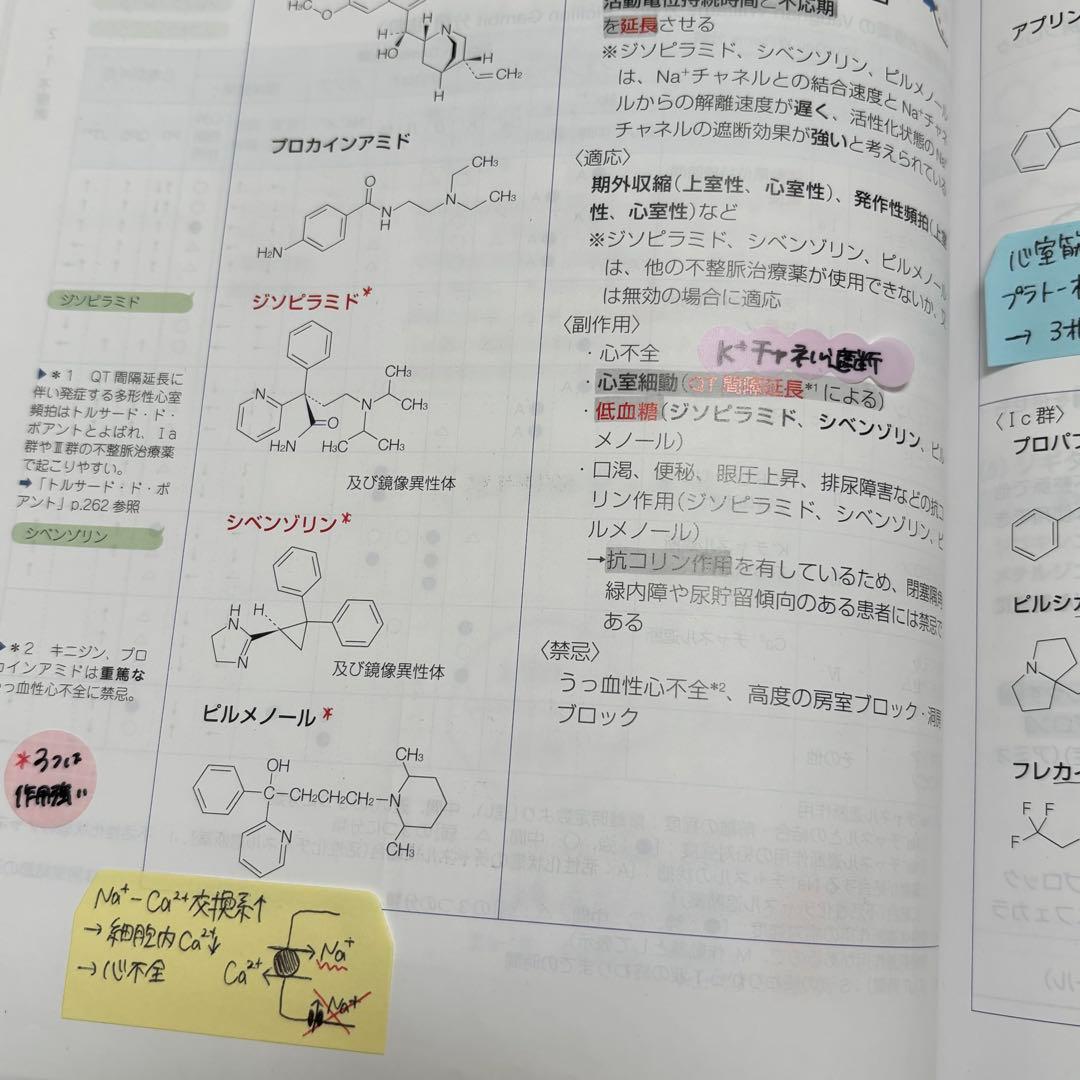 CH₃O
HO
H
H
CH₂
H
プロカインアミド
CH₃
CH₃
O
N
N
H
H₂N
ジソピラミド*
CH₃
CH₃
N
N
O
H₂N
H₃C
CH₃
及び鏡像異性体
シベンゾリン*
H
N
H
N
及び鏡像異性体
ピルメノール*
OH
C-CH₂CH₂CH₂-N
CH₃
CH₃
N
ジソピラミド
*1 QT間隔延長に
伴い発症する多形性心室
頻拍はトルサード・ド・
ポアントとよばれ、Ⅰa
群やⅢ群の不整脈治療薬
で起こりやすい。
➡「トルサード・ド・ポ
アント」p.262 参照
シベンゾリン
*2 キニジン、プロ
カインアミドは重篤な
うっ血性心不全に禁忌。
*3つは
作用強い
Na⁺-Ca²⁺交換系↑
→細胞内Ca²⁺↓
→心不全
Na⁺
Ca²⁺
Na⁺
活動電位持続時間と不応期
を延長させる
※ジソピラミド、シベンゾリン、ピルメノール
は、Na⁺チャネルとの結合速度とNa⁺チャネ
ルからの解離速度が遅く、活性化状態のNa⁺
チャネルの遮断効果が強いと考えられている
〈適応〉
期外収縮(上室性、心室性)、発作性頻拍(上室
性、心室性)など
※ジソピラミド、シベンゾリン、ピルメノール
は、他の不整脈治療薬が使用できないか、又
は無効の場合に適応
〈副作用〉
・心不全
K⁺チャネル遮断
・心室細動(QT間隔延長*1による)
・低血糖(ジソピラミド、シベンゾリン、ピル
メノール)
・口渇、便秘、眼圧上昇、排尿障害などの抗コ
リン作用(ジソピラミド、シベンゾリン、ピ
ルメノール)
→抗コリン作用を有しているため、閉塞隅角
緑内障や尿貯留傾向のある患者には禁忌で
ある
〈禁忌〉
うっ血性心不全*2、高度の房室ブロック・洞房
ブロック
アプリン
心室筋
プラトー相
→3相
〈Ⅰc群〉
プロパフ
ピルシカ
N
フレカイ
F F
F